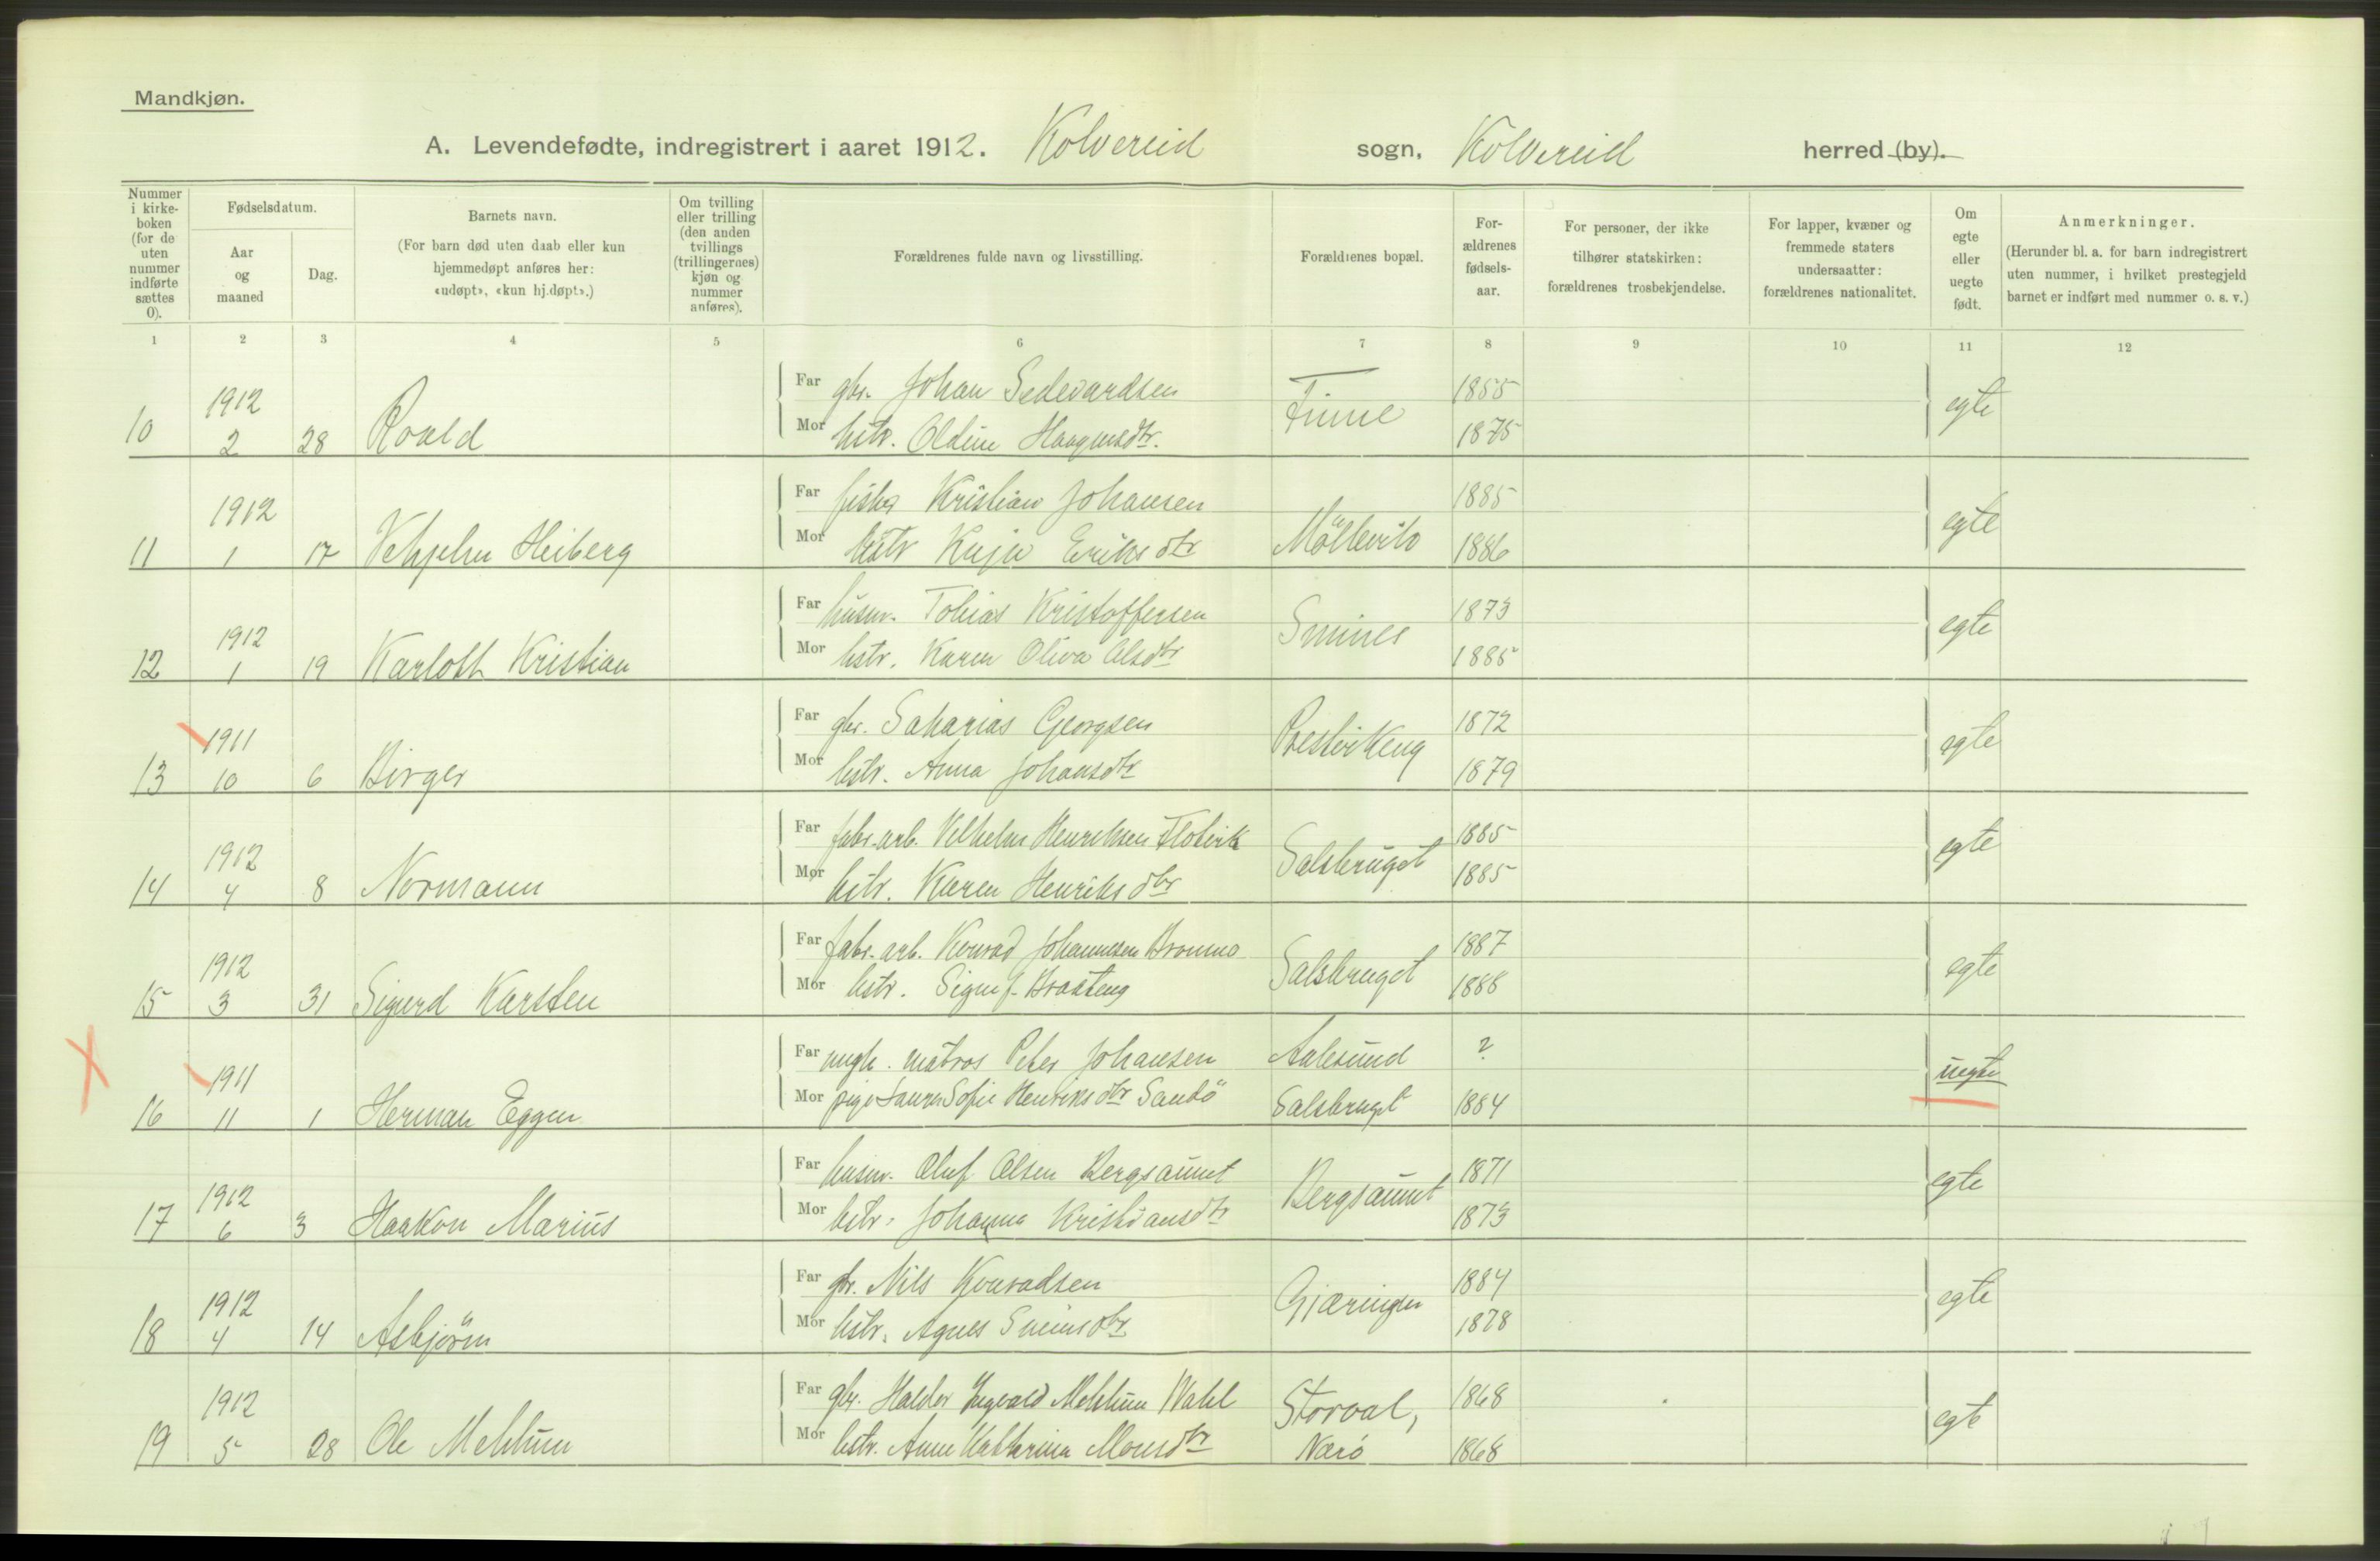 Mandkjøn.
A. Levendefødte, indregistrert i aaret 1912. Kolvereid sogn, Kolvereid herred (by).
Nummer i kirke-boken (for de uten nummer indførte sættes 0).
Fødselsdatum.
Aar og maaned
Dag.
Barnets navn.
(For barn død uten daab eller kun hjemmedøpt anføres her: «udøpt», «kun hj.døpt».)
Om tvilling eller trilling (den anden tvillings (trillingernes) kjøn og nummer anføres).
Forældrenes fulde navn og livsstilling.
Forældrenes bopæl.
For-ældrenes fødsels-aar.
For personer, der ikke tilhører statskirken: forældrenes trosbekjendelse.
For lapper, kvæner og fremmede staters undersaatter: forældrenes nationalitet.
Om egte eller uegte født.
Anmerkninger.
(Herunder bl. a. for barn indregistrert uten nummer, i hvilket prestegjeld barnet er indført med nummer o. s. v.)
1 2 3 4 5 6 7 8 9 10 11 12
Far gbr. Johan Sedevardsen 1855
10 1912 2 28 Roald Finne egte
Mor hstr. Oldine Haagensdtr. 1875
Far fisker Kristian Johansen 1885
11 1912 1 17 Vehjelm Heiberg Möllevik egte
Mor hstr Kaja Eriksdtr 1886
Far husm. Tobias Kristoffersen 1873
12 1912 1 19 Karlott Kristian Smines egte
Mor hstr. Karen Oliva Olsdtr 1885
Far gbr. Sakarias Georgsen 1872
13 1911 10 6 Birger Prestvikeng egte
Mor hstr. Anna Johansdtr 1879
Far fabr. arb. Velhelm Henriksen Flotvik 1885
14 1912 4 8 Normann Salsbruget egte
Mor hstr. Karen Henriksdtr 1885
Far fabr. arb. Konrad Johannesen Bromno 1887
15 1912 3 31 Sigurd Karsten Salsbruget egte
Mor hstr. Signe J. Braateng 1888
Far ungk. matros Peter Johansen Aalesund ?
16 1911 11 1 Herman Eggen uegte
Mor pige Laura Sofie Henriksdtr Sandö Salsbruget 1884
Far husm. Oluf Olsen Bergsaunet 1871
17 1912 6 3 Haakon Marius Bergsaunet egte
Mor hstr. Johanna Kristiansdtr 1873
Far gbr. Nils Konradsen 1884
18 1912 4 14 Asbjörn Gjæringen egte
Mor hstr. Agnes Sneimsdtr 1878
Far gbr. Haldor Ingvald Mehlum Wahl Storval, 1868
19 1912 5 28 Ole Mehlum egte
Mor hstr. Anne Katharina Monsdtr Nærö 1868